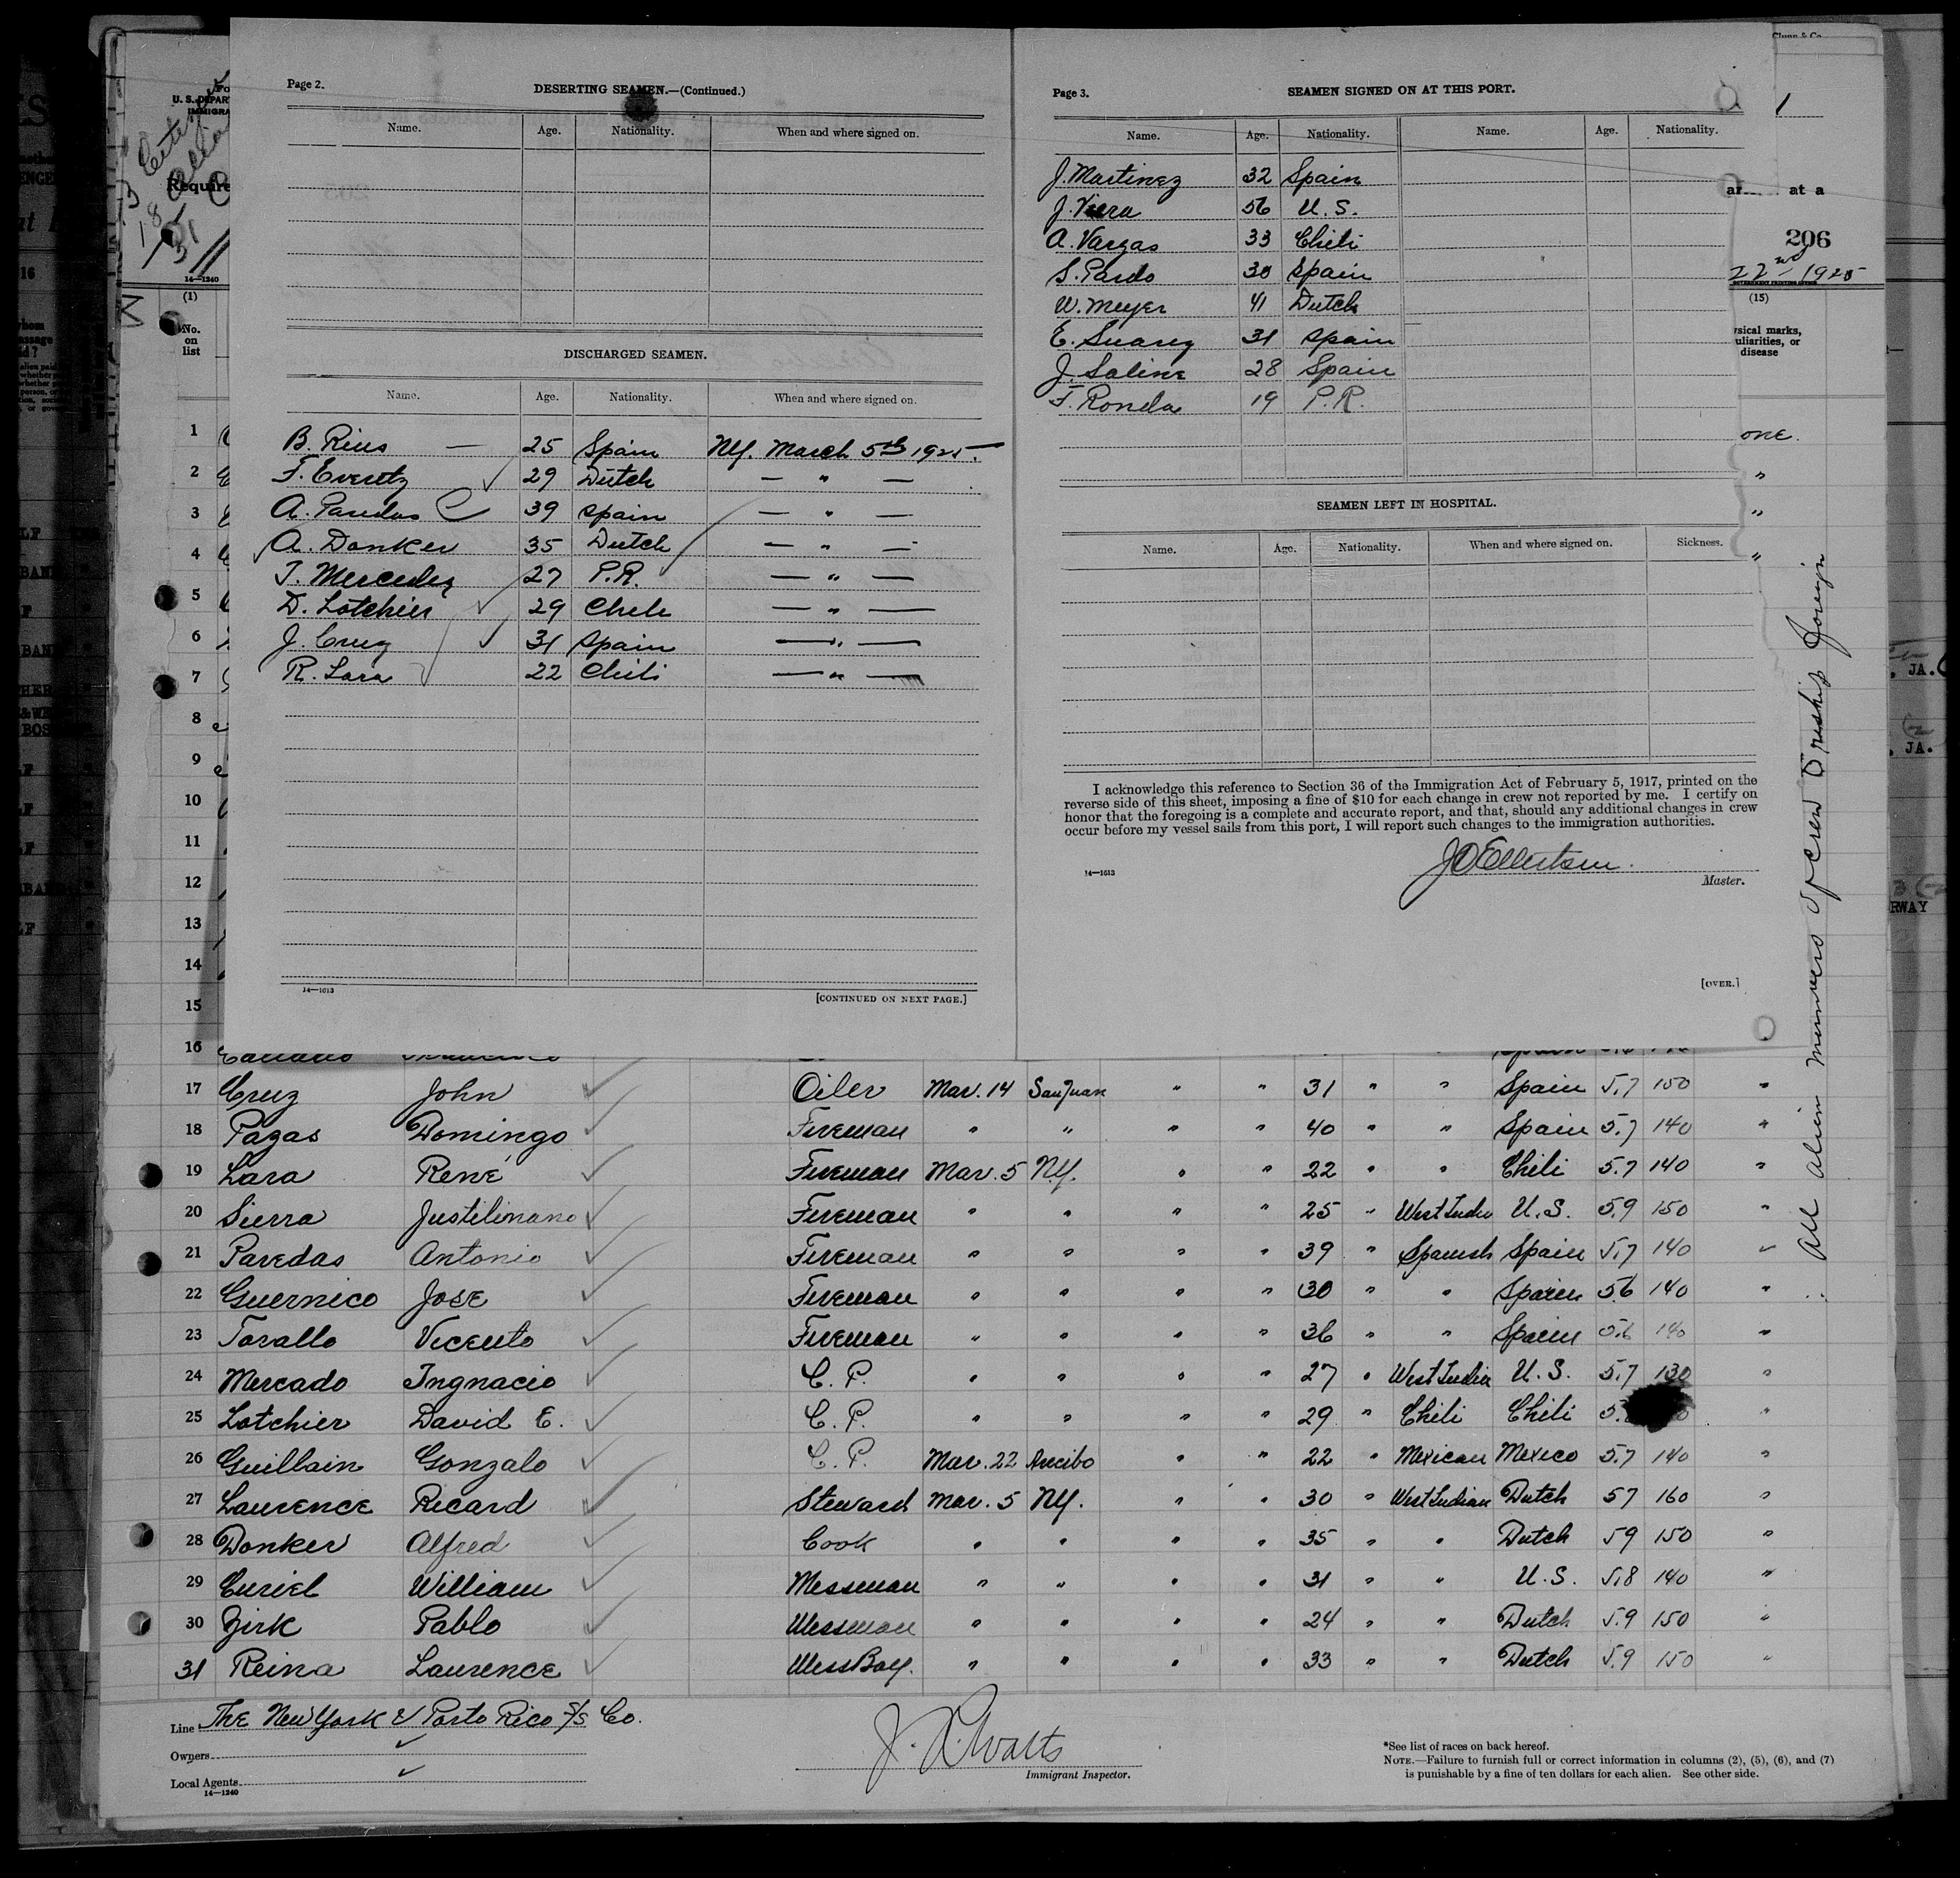 Page 2.
DESERTING SEAMEN.—(Continued.)
Name. Age. Nationality. When and where signed on.
DISCHARGED SEAMEN.
Name. Age. Nationality. When and where signed on.
B. Rius — 25 Spain NY. March 5th 1925.
F. Evertz 29 Dutch — " —
A. Paredas 39 Spain — " —
A. Donker 35 Dutch — " —
I. Mercedez 27 P.R. — " —
D. Lotchier 29 Chele — " —
J. Cruz 31 Spain — " —
R. Lara 22 Chili — " —
14—1613
[CONTINUED ON NEXT PAGE.]
Page 3.
SEAMEN SIGNED ON AT THIS PORT.
Name. Age. Nationality. Name. Age. Nationality.
J. Martinez 32 Spain
J. Viera 56 U.S.
A. Vargas 33 Chili
S. Pardo 30 Spain
W. Meyer 41 Dutch
E. Suarez 31 Spain
J. Saline 28 Spain
F. Ronda 19 P.R.
SEAMEN LEFT IN HOSPITAL.
Name. Age. Nationality. When and where signed on. Sickness.
I acknowledge this reference to Section 36 of the Immigration Act of February 5, 1917, printed on the
reverse side of this sheet, imposing a fine of $10 for each change in crew not reported by me. I certify on
honor that the foregoing is a complete and accurate report, and that, should any additional changes in crew
occur before my vessel sails from this port, I will report such changes to the immigration authorities.
J O Ellertsen.
14—1613
Master.
[OVER.]
U. S. DEPAR
IMMIGRA
Require
14—1240
(1)
No.
on
list
1
at a
206
22nd 1925
(15)
sical marks,
uliarities, or
disease
one.
1
2
3
4
5
6
7
8
9
10
11
12
13
14
15
16
17 Cruz John Oiler Mar. 14 San Juan " " 31 " " Spain 5.7 150 "
18 Pazas Domingo Fireman " " " " 40 " " Spain 5.7 140 "
19 Lara René Fireman Mar. 5 N.Y. " " 22 " " Chili 5.7 140 "
20 Sierra Justilinano Fireman " " " " 25 " West Indie U.S. 5.9 150 "
21 Paredas Antonio Fireman " " " " 39 " Spanish Spain 5.7 140 "
22 Guernico Jose Fireman " " " " 30 " " Spain 5.6 140 "
23 Torallo Vicento Fireman " " " " 36 " " Spain 5.6 140 "
24 Mercado Ingnacio C. P. " " " " 27 " West India U.S. 5.7 130 "
25 Lotchier David E. C. P. " " " " 29 " Chili Chili 5. "
26 Guillain Gonzalo C. P. Mar. 22 Arecibo " " 22 " Mexican Mexico 5.7 140 "
27 Laurence Ricard Steward Mar. 5 NY. " " 30 " West Indian Dutch 57 160 "
28 Donker Alfred Cook " " " " 35 " " Dutch 59 150 "
29 Curiel William Messman " " " " 31 " " U.S. 5.8 140 "
30 Zirk Pablo Messman " " " " 24 " " Dutch 5.9 150 "
31 Reina Laurence MessBoy. " " " " 33 " " Dutch 5.9 150 "
All alien members of crew Friship Foreign
Line The New York & Porto Rico S/S Co.
Owners
Local Agents
14—1240
J. R. Watts
Immigrant Inspector.
*See list of races on back hereof.
NOTE.—Failure to furnish full or correct information in columns (2), (5), (6), and (7)
is punishable by a fine of ten dollars for each alien. See other side.